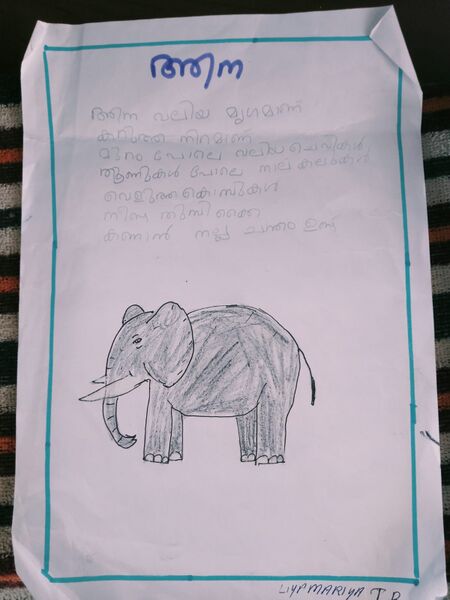 ആന
ആന വലിയ മൃഗമാണ്
കറുത്ത നിറമാണ്
മുറം പോലെ വലിയ ചെവികൾ
തൂണുകൾ പോലെ നാല് കാലുകൾ
വെളുത്ത കൊമ്പുകൾ
നീണ്ട തുമ്പിക്കൈ
കാണാൻ നല്ല ചന്തം ഉണ്ട്
LIYA MARIYA T R